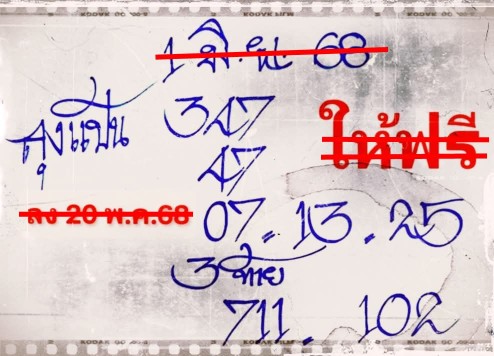 1 มิ.ย. 68
ลุงแป๊ะ 347
ให้ฟรี
47
ลง 20 พ.ค.68
07.13.25
3 ท้าย
711. 102
KODAK